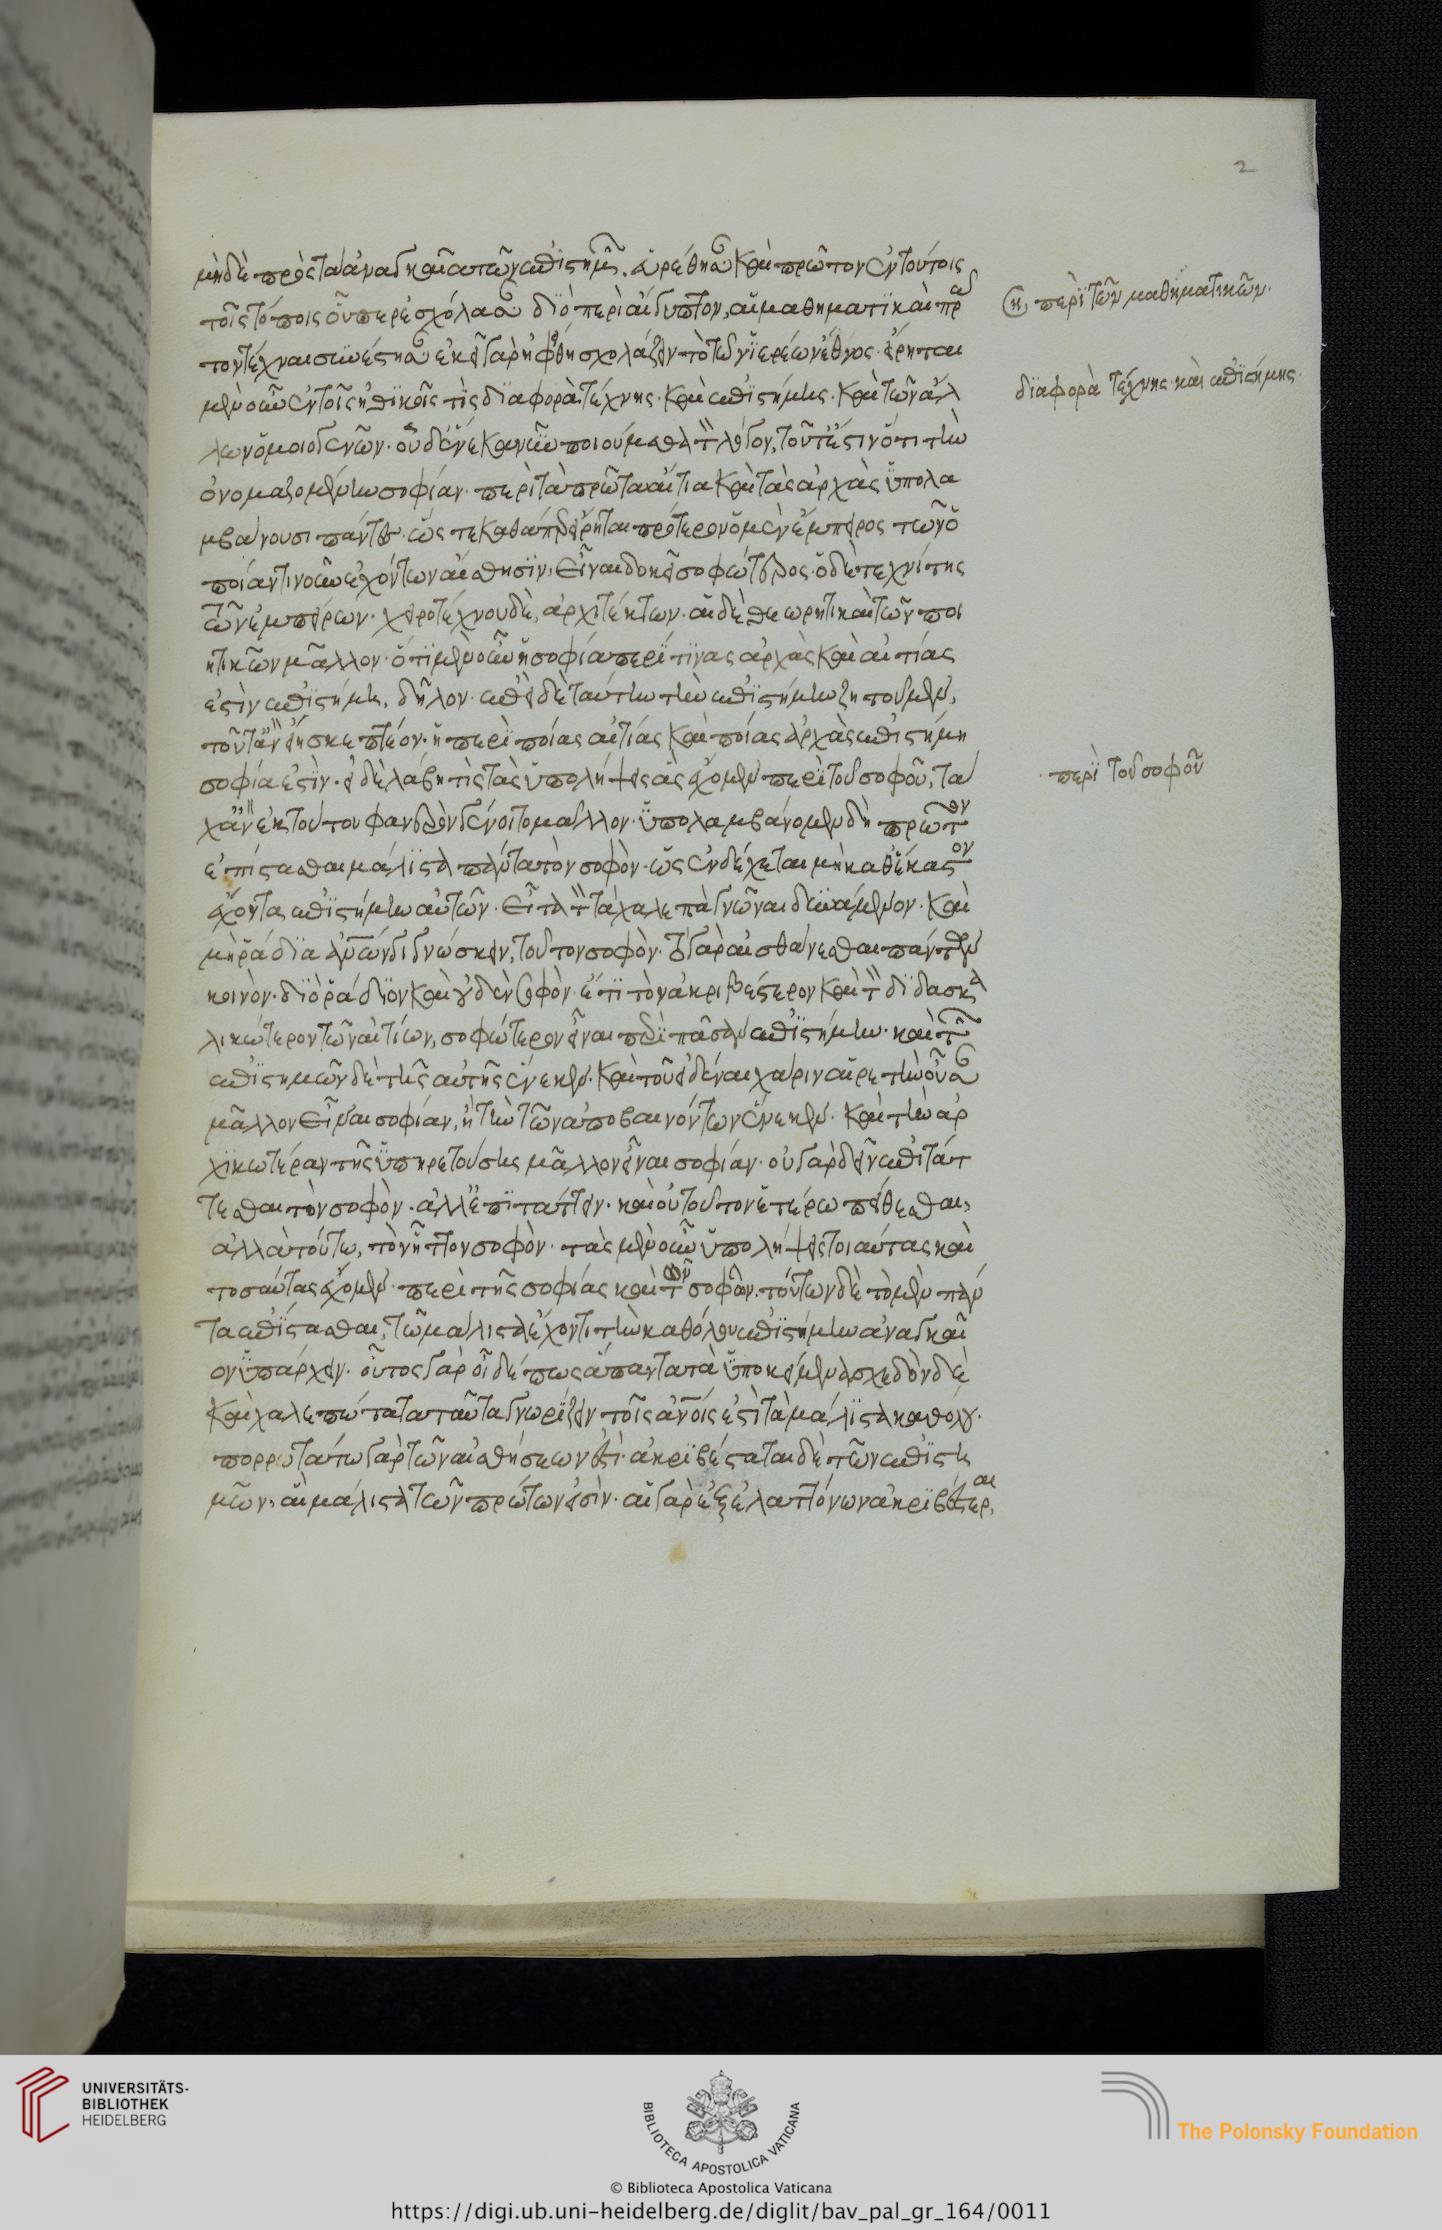 2
μὴδὲ πρὸς τἀναγκαῖα τῶν ἐπιστημῶν εὑρέθησαν καὶ πρῶτον ἐν τούτοις
τοῖς τόποις οὗπερ ἐσχόλασαν διὸ περὶ αἴγυπτον, αἱ μαθηματικαὶ πρῶ
τον τέχναι συνέστησαν ἐκεῖ γὰρ ἠφέθη σχολάζειν τὸ τῶν ἱερέων ἔθνος. εἴρηται
μὲν οὖν ἐν τοῖς ἠθικοῖς τίς διαφορὰ τέχνης. καὶ ἐπιστήμης. καὶ τῶν ἄλ
λων ὁμοιογενῶν. οὗ δ' ἕνεκα νῦν ποιούμεθα τὸν λόγον, τοῦτ' ἔστιν ὅτι τὴν
ὀνομαζομένην σοφίαν. περὶ τὰ πρῶτα αἴτια καὶ τὰς ἀρχὰς ὑπολα
μβάνουσι πάντες. ὥστε καθάπερ εἴρηται πρότερον ὁ μὲν ἔμπειρος τῶν ὁ
ποίαν τινοῦν ἐχόντων αἴσθησιν, εἶναι δοκεῖ σοφώτερος. ὁ δὲ τεχνίτης
τῶν ἐμπείρων. χειροτέχνου δὲ, ἀρχιτέκτων. αἱ δὲ θεωρητικαὶ τῶν ποι
ητικῶν μᾶλλον. ὅτι μὲν οὖν ἡ σοφία περί τινας ἀρχὰς καὶ αἰτίας
ἐστὶν ἐπιστήμη, δῆλον. ἐπεὶ δὲ ταύτην τὴν ἐπιστήμην ζητοῦμεν,
τοῦτ' ἂν εἴη σκεπτέον. ἡ περὶ ποίας αἰτίας καὶ ποίας ἀρχὰς ἐπιστήμη
σοφία ἐστὶν. εἰ δὲ λάβη τις τὰς ὑπολήψεις ἃς ἔχομεν περὶ τοῦ σοφοῦ, τά
χ' ἂν ἐκ τούτου φανερὸν γένοιτο μᾶλλον. ὑπολαμβάνομεν δὴ πρῶτον
ἐπίστασθαι μάλιστα πάντα τὸν σοφὸν. ὡς ἐνδέχεται μὴ καθ' ἕκαστον
ἔχοντα ἐπιστήμην αὐτῶν. εἶτα τὸν τὰ χαλεπὰ γνῶναι δυνάμενον. καὶ
μὴ ῥάδια ἀνθρώπῳ γιγνώσκειν, τοῦτον σοφὸν. τὸ γὰρ αἰσθάνεσθαι πάντων
κοινὸν. διὸ ῥάδιον καὶ οὐδὲν σοφὸν. ἔτι τὸν ἀκριβέστερον καὶ τὸν διδασκα
λικώτερον τῶν αἰτίων, σοφώτερον εἶναι περὶ πᾶσαν ἐπιστήμην. καὶ τῶν
ἐπιστημῶν δὲ τῆς αὐτῆς ἕνεκεν. καὶ τοῦ εἰδέναι χάριν αἱρετὴν οὖσαν
μᾶλλον εἶναι σοφίαν, ἢ τὴν τῶν ἀποβαινόντων ἕνεκεν. καὶ τὴν ἀρ
χικωτέραν τῆς ὑπηρετούσης μᾶλλον εἶναι σοφίαν. οὐ γὰρ δεῖν ἐπιτάτ
τεσθαι τὸν σοφὸν. ἀλλ' ἐπιτάττειν. καὶ οὐ τοῦτον ἑτέρω πείθεσθαι,
ἀλλὰ τούτω, τὸν ἧττον σοφὸν. τὰς μὲν οὖν ὑπολήψεις τοιαύτας καὶ
τοσαύτας ἔχομεν. περὶ τῆς σοφίας καὶ τῶν σοφῶν. τούτων δὲ τὸ μὲν πάν
τα ἐπίστασθαι, τῶ μάλιστα ἔχοντι τὴν καθόλου ἐπιστήμην ἀναγκαῖ
ον ὑπάρχειν. οὗτος γὰρ οἶδέ πως ἅπαντα τὰ ὑποκείμενα σχεδὸν δὲ
καὶ χαλεπώτατα ταῦτα γνωρίζειν τοῖς ἀνοις ἐστὶ τὰ μάλιστα καθόλου.
πορρωτάτω γὰρ τῶν αἰσθήσεων ἐστὶ. ἀκριβέσταται δὲ τῶν ἐπιστη
μῶν. αἳ μάλιστα τῶν πρώτων εἰσὶν. αἱ γὰρ ἐξ ἐλαττόνων ἀκριβέστεραι,
ση, περὶ τῶν μαθηματικῶν.
διαφορὰ τέχνης καὶ ἐπιστήμης.
περὶ τοῦ σοφοῦ
UNIVERSITÄTS-
BIBLIOTHEK
HEIDELBERG
BIBLIOTECA APOSTOLICA VATICANA
The Polonsky Foundation
© Biblioteca Apostolica Vaticana
https://digi.ub.uni-heidelberg.de/diglit/bav_pal_gr_164/0011